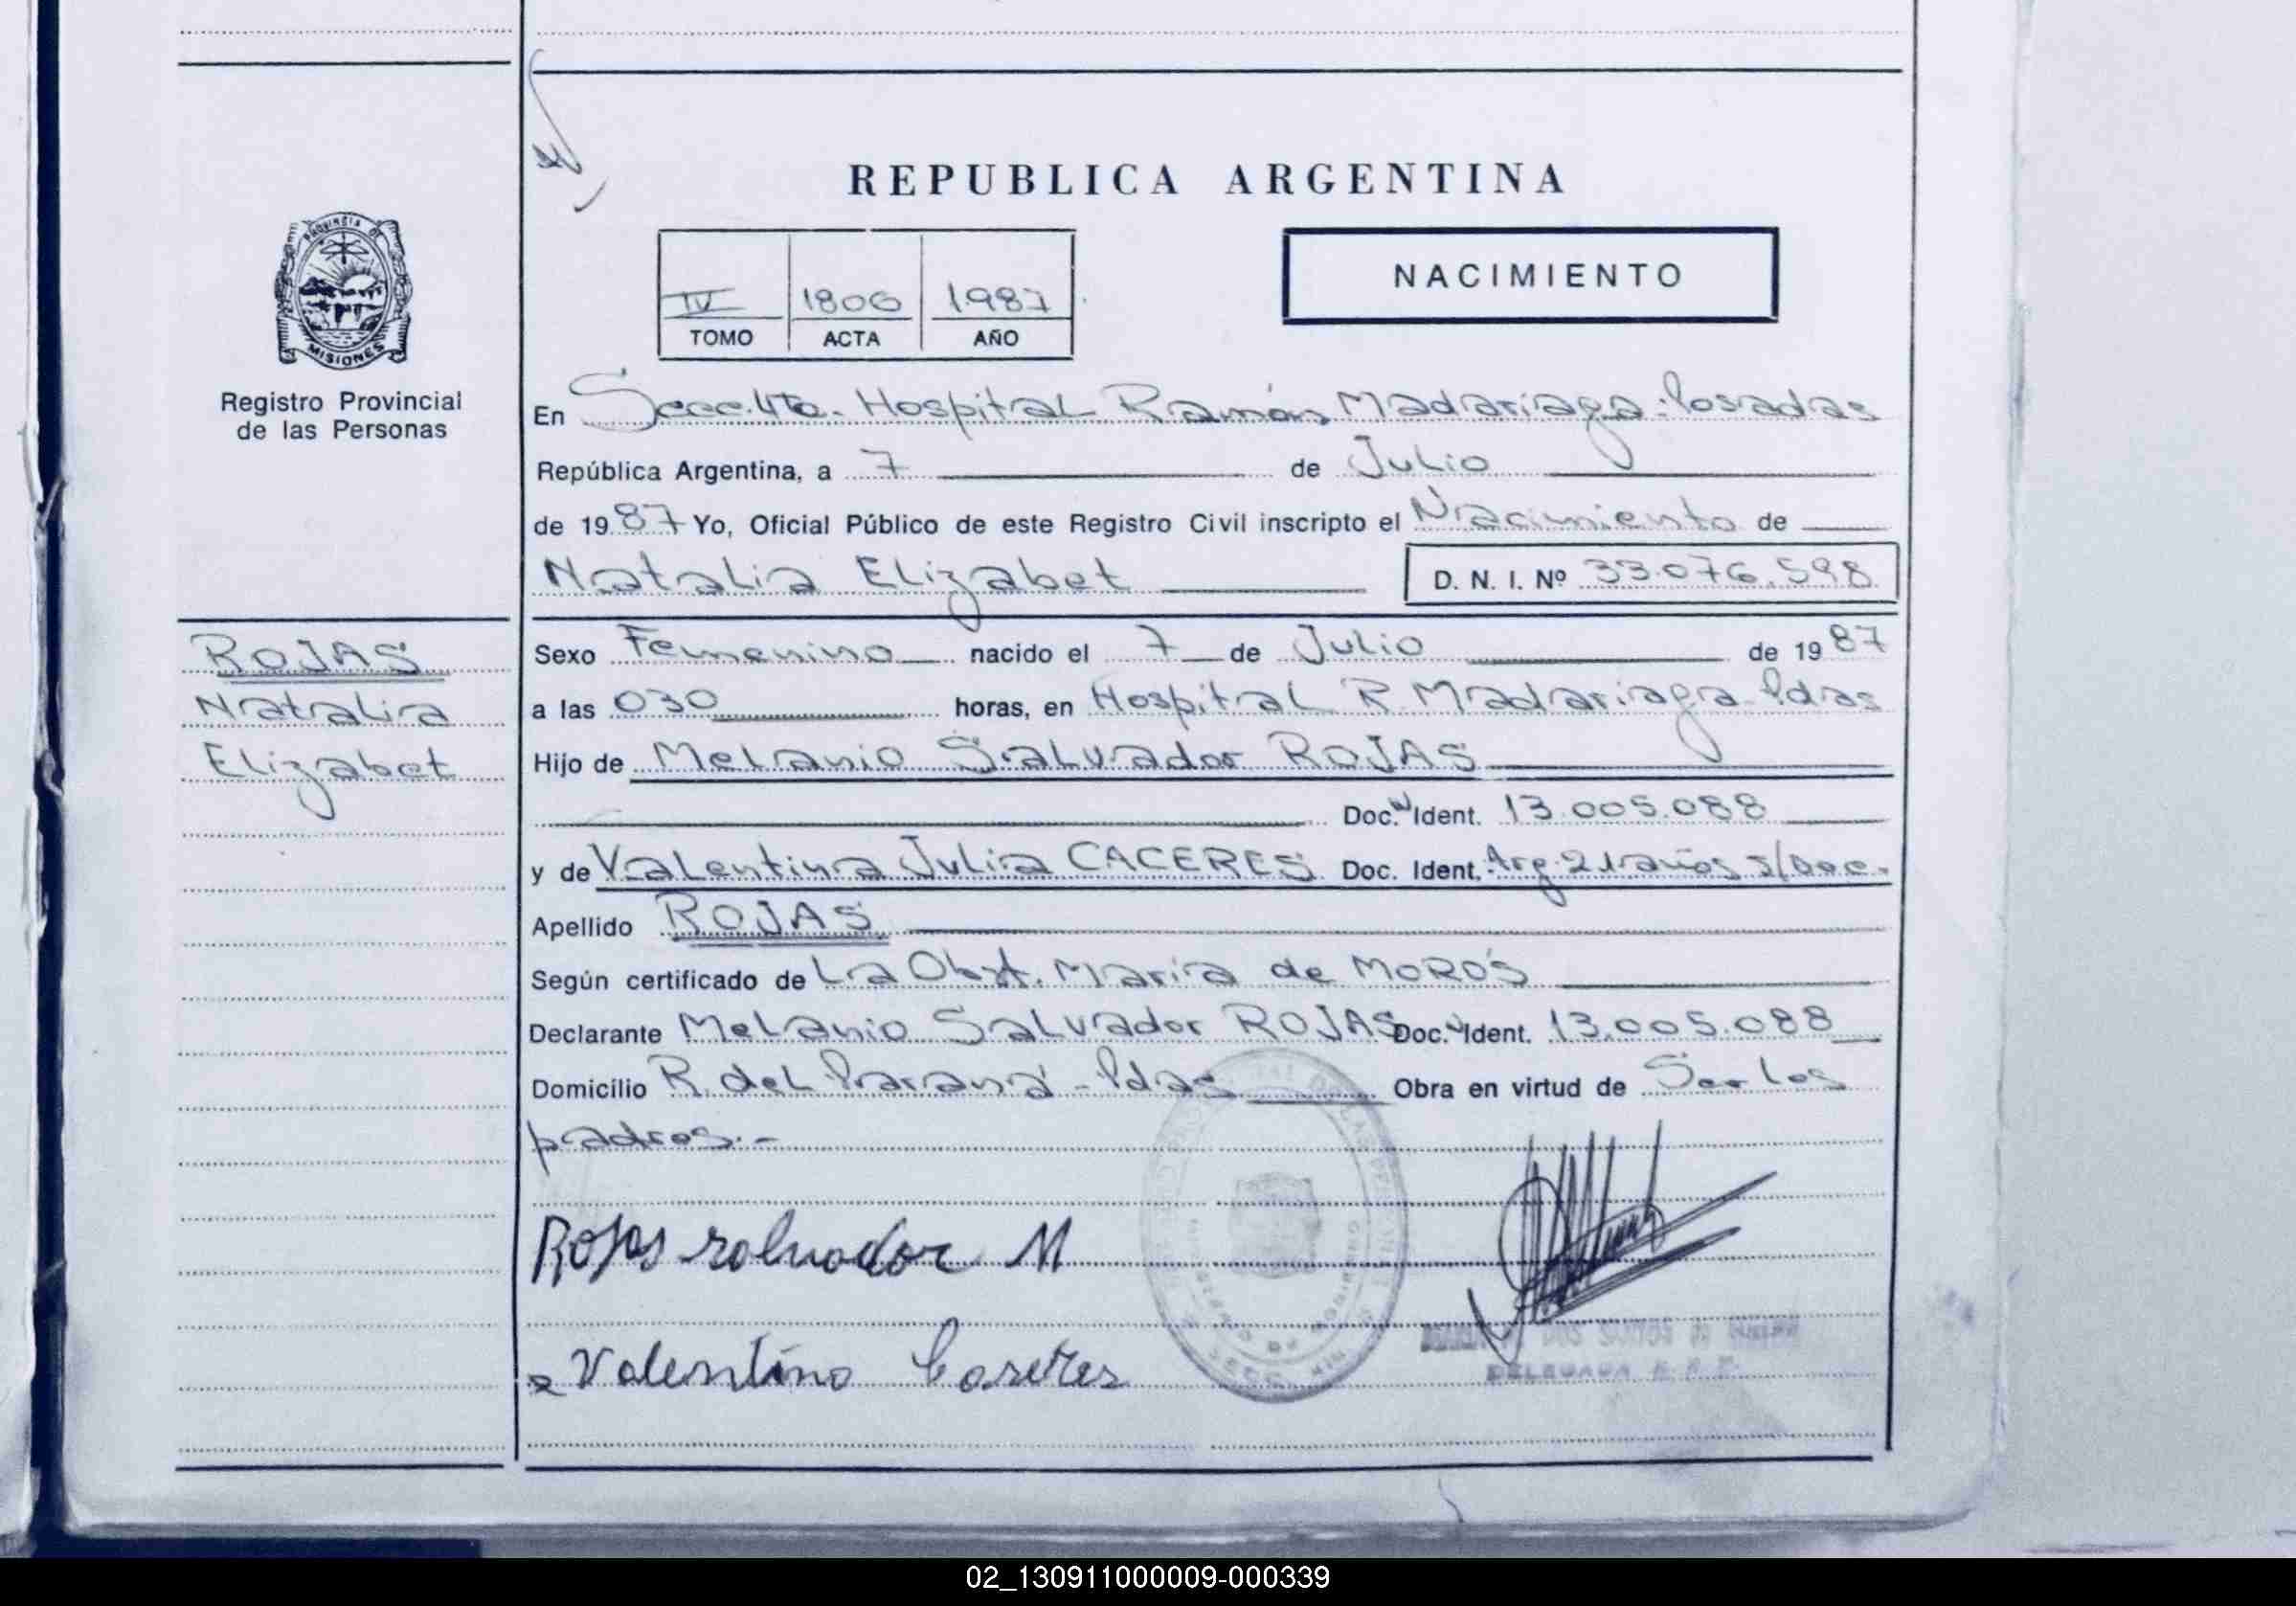 REPUBLICA ARGENTINA
PROVINCIA DE
MISIONES
Registro Provincial
de las Personas
IV 1806 1987
TOMO ACTA AÑO
NACIMIENTO
En Secc. 4ta. Hospital Ramón Madariaga - Posadas
República Argentina, a 7 de Julio
de 1987 Yo, Oficial Público de este Registro Civil inscripto el Nacimiento de
Natalia Elizabet D. N. I. Nº 33.076.598
ROJAS
Natalia
Elizabet
Sexo Femenino nacido el 7 de Julio de 1987
a las 030 horas, en Hospital R. Madariaga - Pdas
Hijo de Melanio Salvador ROJAS
Doc. Ident. 13.005.088
y de Valentina Julia CACERES Doc. Ident. Arg. 21 años s/Doc.
Apellido ROJAS
Según certificado de La Obst. María de MOROS
Declarante Melanio Salvador ROJAS Doc. Ident. 13.005.088
Domicilio R. del Paraná - Pdas Obra en virtud de Ser los
padres.-
Rojas salvador M
Valentina Caseres
DELEGADA
02_130911000009-000339